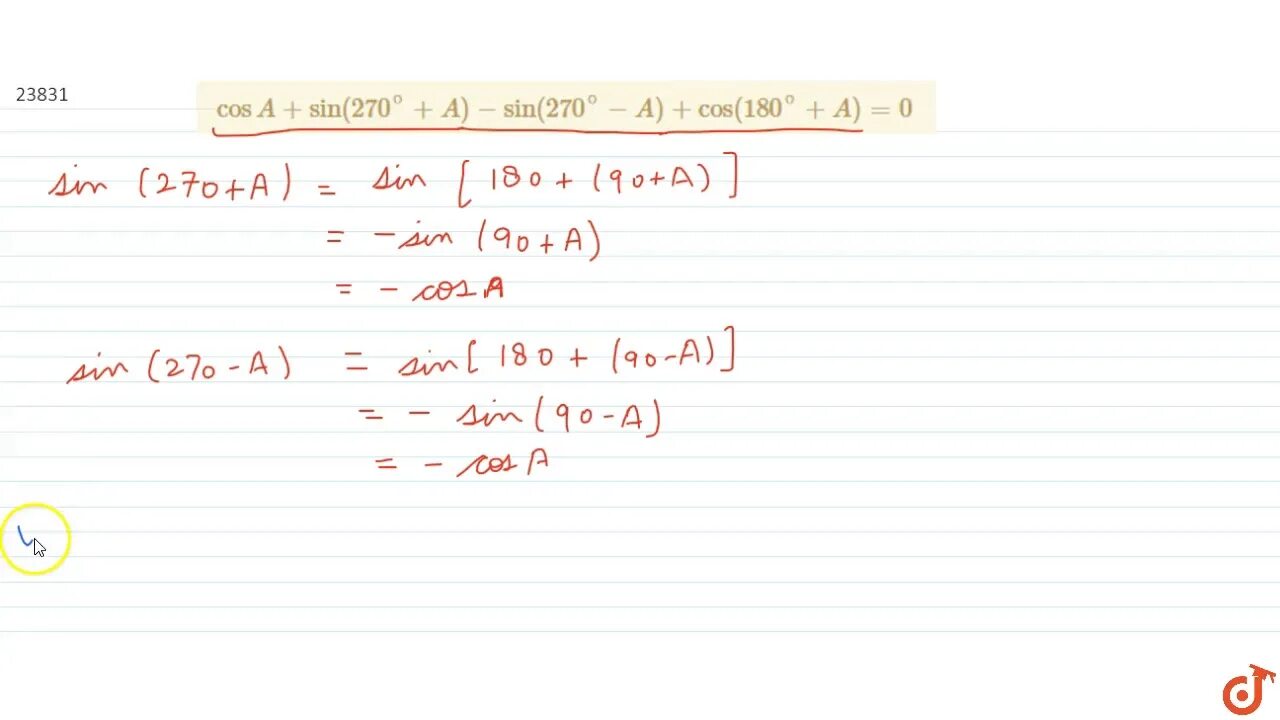 23831
cos A + sin(270° + A) − sin(270° − A) + cos(180° + A) = 0
sin (270+A) = sin [180 + (90+A)]
= −sin (90+A)
= − cos A
sin (270−A) = sin[180 + (90−A)]
= − sin(90−A)
= − cos A